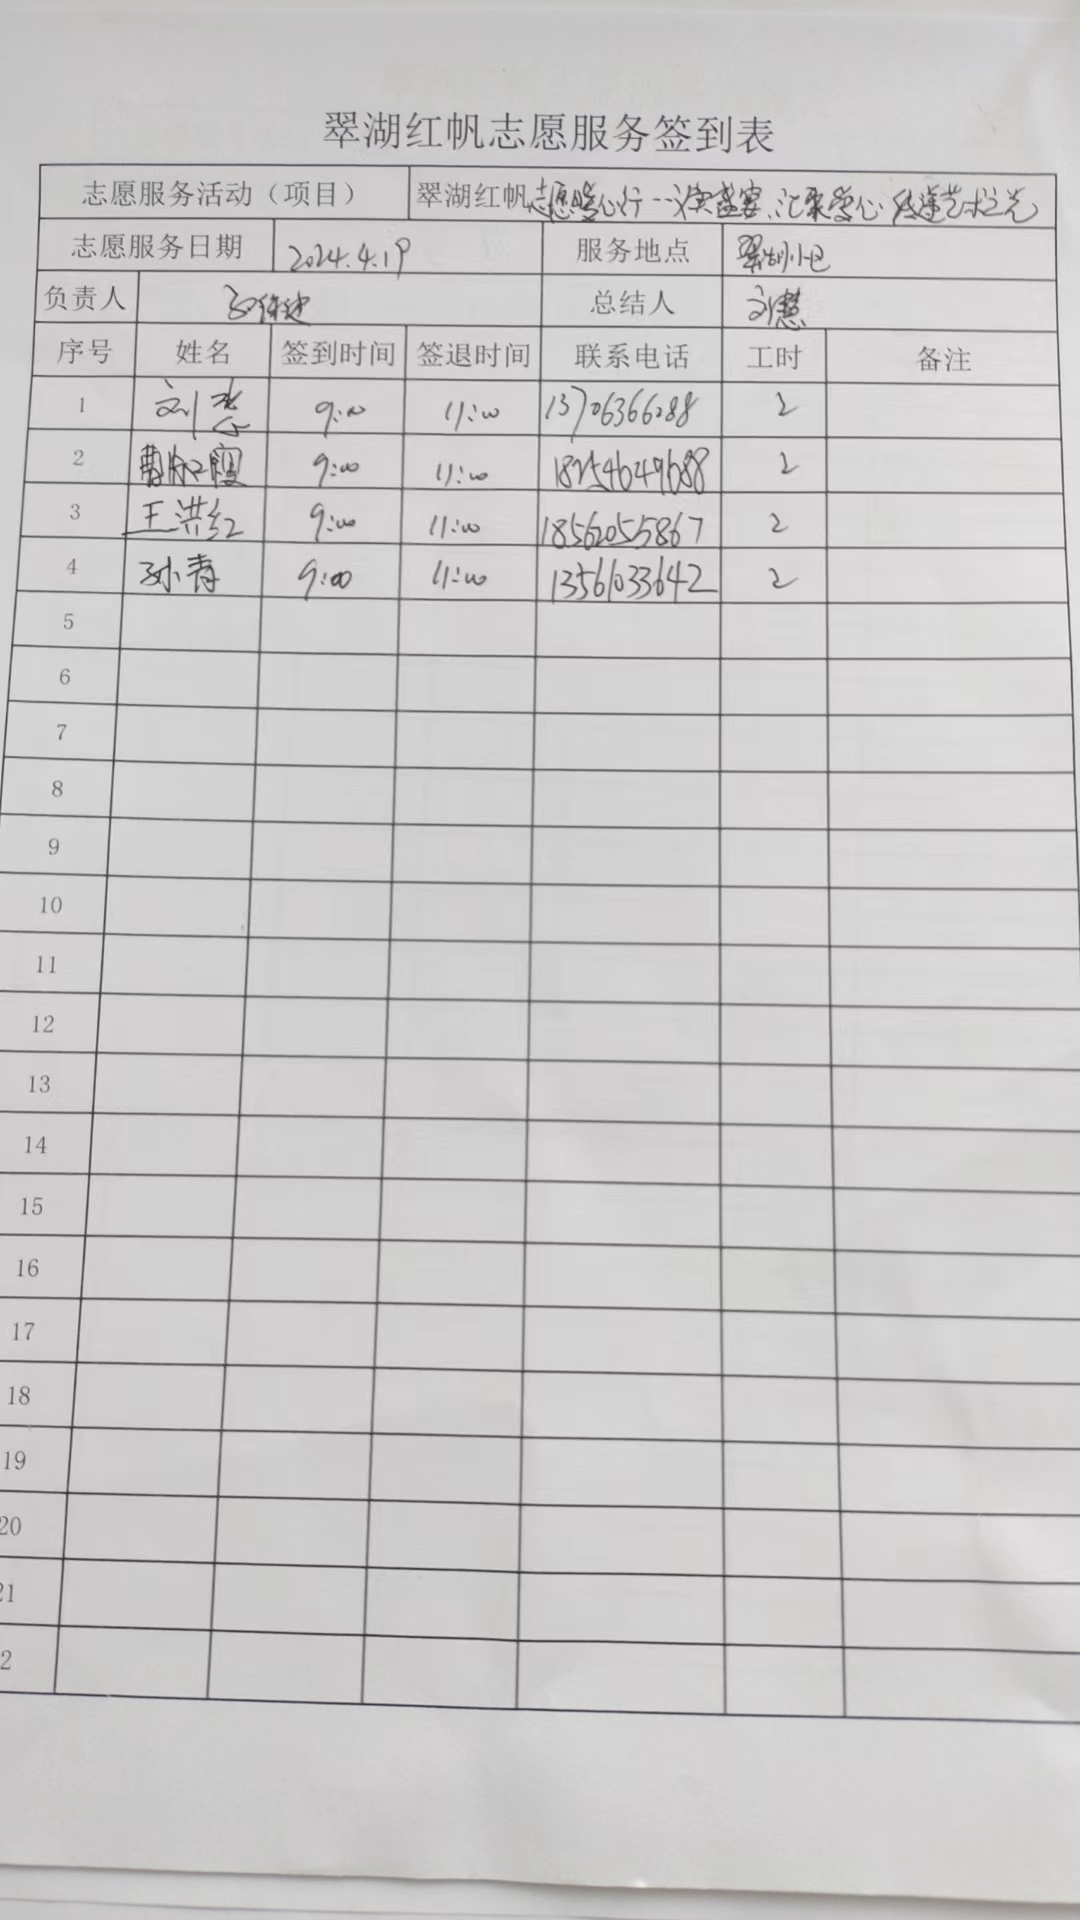 翠湖红帆志愿服务签到表
志愿服务活动（项目） 翠湖红帆志愿暖心行 汇聚爱心 传递艺术之光
志愿服务日期 2024.4.19 服务地点 翠湖小区
负责人 总结人 刘慧
序号 姓名 签到时间 签退时间 联系电话 工时 备注
1 刘慧 9:00 11:00 13706366088 2
2 9:00 11:00 18254649688 2
3 王洪红 9:00 11:00 18562055867 2
4 孙青 9:00 11:00 13561033642 2
5
6
7
8
9
10
11
12
13
14
15
16
17
18
19
20
21
2